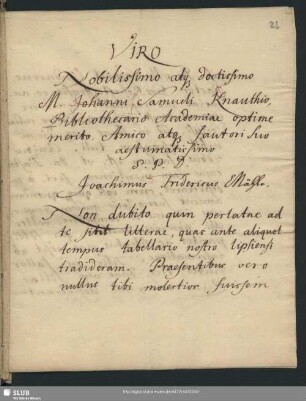 22
VIRO
Nobilissimo atq doctissimo
M. Johanni Samueli Knauthio,
Bibliothecario Academiae optime
merito. Amico atq fautori suo
aestumatissimo
S. P. D
Joachimus Fridericus
Non dubito quin perlatae ad
te litterae, quas ante aliquot
tempus tabellario nostro Lipsiensi
tradideram. Praesentibus vero
nullus tibi molestior fuissem
SLUB
Wir führen Wissen.